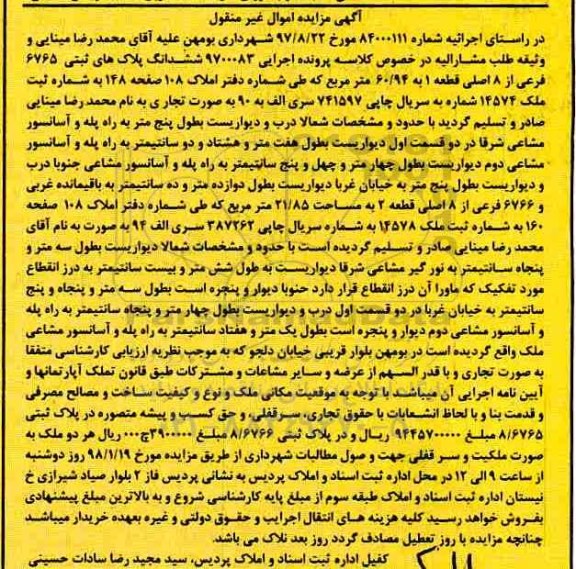 آگهی مزایده اموال غیر منقول
در راستای اجرائیه شماره ۸۴۰۰۰۱۱۱ مورخ ۹۷/۸/۲۲ شهرداری بومهن علیه آقای محمد رضا مینایی و
وثیقه طلب مشارالیه در خصوص کلاسه پرونده اجرایی ۹۷۰۰۰۸۳ ششدانگ پلاک های ثبتی ۶۷۶۵
فرعی از ۸ اصلی قطعه ۱ به ۶۰/۹۴ متر مربع که طی شماره دفتر املاک ۱۰۸ صفحه ۱۴۸ به شماره ثبت
ملک ۱۴۵۷۴ شماره به سریال چاپی ۷۴۱۵۹۷ سری الف به ۹۰ به صورت تجاری به نام محمد رضا مینایی
صادر و تسلیم گردید با حدود و مشخصات شمالا درب و دیواریست بطول پنج متر به راه پله و آسانسور
مشاعی شرقا در دو قسمت اول دیواریست بطول هفت متر و هشتاد و دو سانتیمتر به راه پله و آسانسور
مشاعی دوم دیواریست بطول چهار متر و چهل و پنج سانتیمتر به راه پله و آسانسور مشاعی جنوبا درب
و دیواریست بطول پنج متر به خیابان غربا دیواریست بطول دوازده متر و ده سانتیمتر به باقیمانده غربی
و ۶۷۶۶ فرعی از ۸ اصلی قطعه ۲ به مساحت ۲۱/۸۵ متر مربع که طی شماره دفتر املاک ۱۰۸ صفحه
۱۶۰ به شماره ثبت ملک ۱۴۵۷۸ به شماره سریال چاپی ۳۸۷۲۶۲ سری الف ۹۴ به صورت به نام آقای
محمد رضا مینایی صادر و تسلیم گردیده است با حدود و مشخصات شمالا دیواریست بطول سه متر و
پنجاه سانتیمتر به نور گیر مشاعی شرقا دیواریست به طول شش متر و بیست سانتیمتر به درز انقطاع
مورد تفکیک که ماورا آن درز انقطاع قرار دارد جنوبا دیوار و پنجره است بطول سه متر و پنجاه و پنج
سانتیمتر به خیابان غربا در دو قسمت اول درب و دیواریست بطول چهار متر و پنجاه سانتیمتر به راه پله
و آسانسور مشاعی دوم دیوار و پنجره است بطول یک متر و هفتاد سانتیمتر به راه پله و آسانسور مشاعی
ملک واقع گردیده است در بومهن بلوار قریبی خیابان دلجو که به موجب نظریه ارزیابی کارشناسی متفقا
به صورت تجاری و با قدر السهم از عرصه و سایر مشاعات و مشترکات طبق قانون تملک آپارتمانها و
آیین نامه اجرایی آن میباشد. با توجه به موقعیت مکانی ملک و نوع و کیفیت ساخت و مصالح مصرفی
و قدمت بنا و با لحاظ انشعابات با حقوق تجاری، سرقفلی، و حق کسب و پیشه متصوره در پلاک ثبتی
۸/۶۷۶۵ مبلغ ۹۴۴۵۷۰۰۰۰۰ ریال و در پلاک ثبتی ۸/۶۷۶۶ مبلغ ریال هر دو ملک به
صورت ملکیت و سر قفلی جهت و صول مطالبات شهرداری از طریق مزایده مورخ ۹۸/۱/۱۹ روز دوشنبه
از ساعت ۹ الی ۱۲ در محل اداره ثبت اسناد و املاک پردیس به نشانی پردیس فاز ۲ بلوار صیاد شیرازی خ
نیستان اداره ثبت اسناد و املاک طبقه سوم از مبلغ پایه کارشناسی شروع و به بالاترین مبلغ پیشنهادی
بفروش خواهد رسید کلیه هزینه های انتقال اجرایی و حقوق دولتی و غیره بعهده خریدار میباشد
چنانچه مزایده با روز تعطیل مصادف گردد روز بعد نلاک می باشد.
کفیل اداره ثبت اسناد و املاک پردیس، سید مجید رضا سادات حسینی